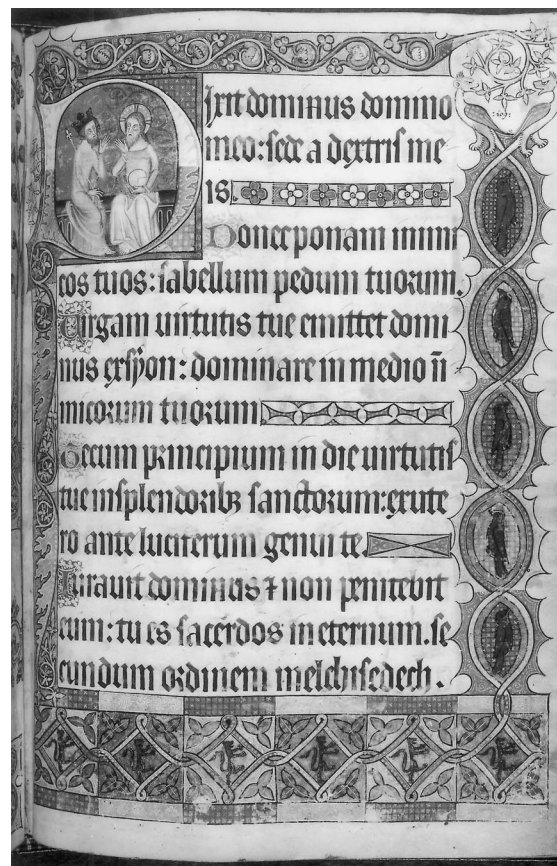 Dixit dominus domino
meo: sede a dextris me
is
Donec ponam inimi
cos tuos: scabellum pedum tuorum.
Virgam uirtutis tue emittet domi
nus ex syon: dominare in medio ini
micorum tuorum
Tecum principium in die uirtutis
tue in splendoribꝫ sanctorum: ex ute
ro ante luciferum genui te.
Iurauit dominus ⁊ non penitebit
eum: tu es sacerdos in eternum. se
cundum ordinem melchisedech.